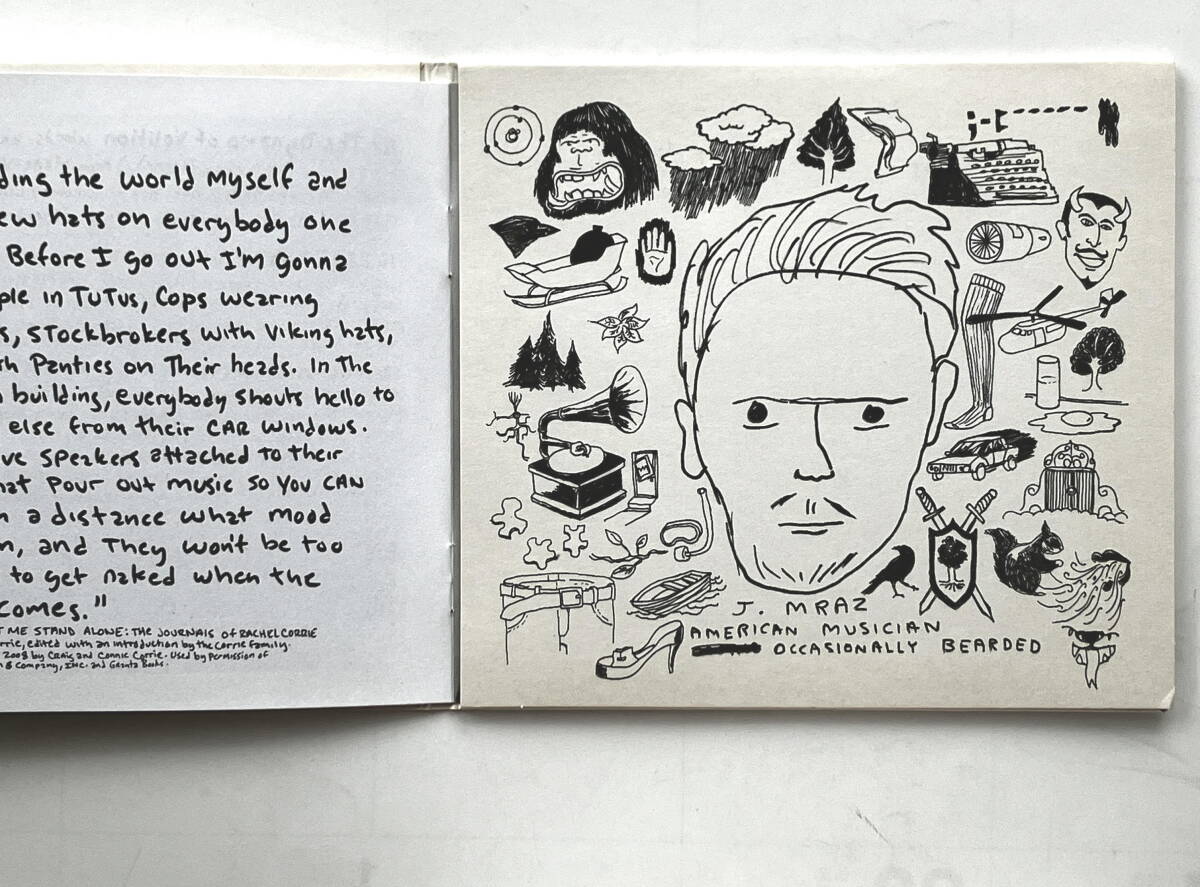 ding the world myself and
ew hats on everybody one
Before I go out I'm gonna
ple in TuTus, Cops wearing
s, stockbrokers with Viking hats,
th Panties on Their heads. In the
building, everybody shouts hello to
else from their CAR windows.
ve speakers attached to their
hat pour out music so you CAN
a distance what mood
m, and They won't be too
to get naked when the
comes."
T ME STAND ALONE: THE JOURNALS of RACHEL CORRIE
orrie, edited with an introduction by the Corrie family.
2008 by Craig and Connie Corrie. Used by Permission of
& Company, Inc. and Granta Books.
J. MRAZ
AMERICAN MUSICIAN
OCCASIONALLY BEARDED